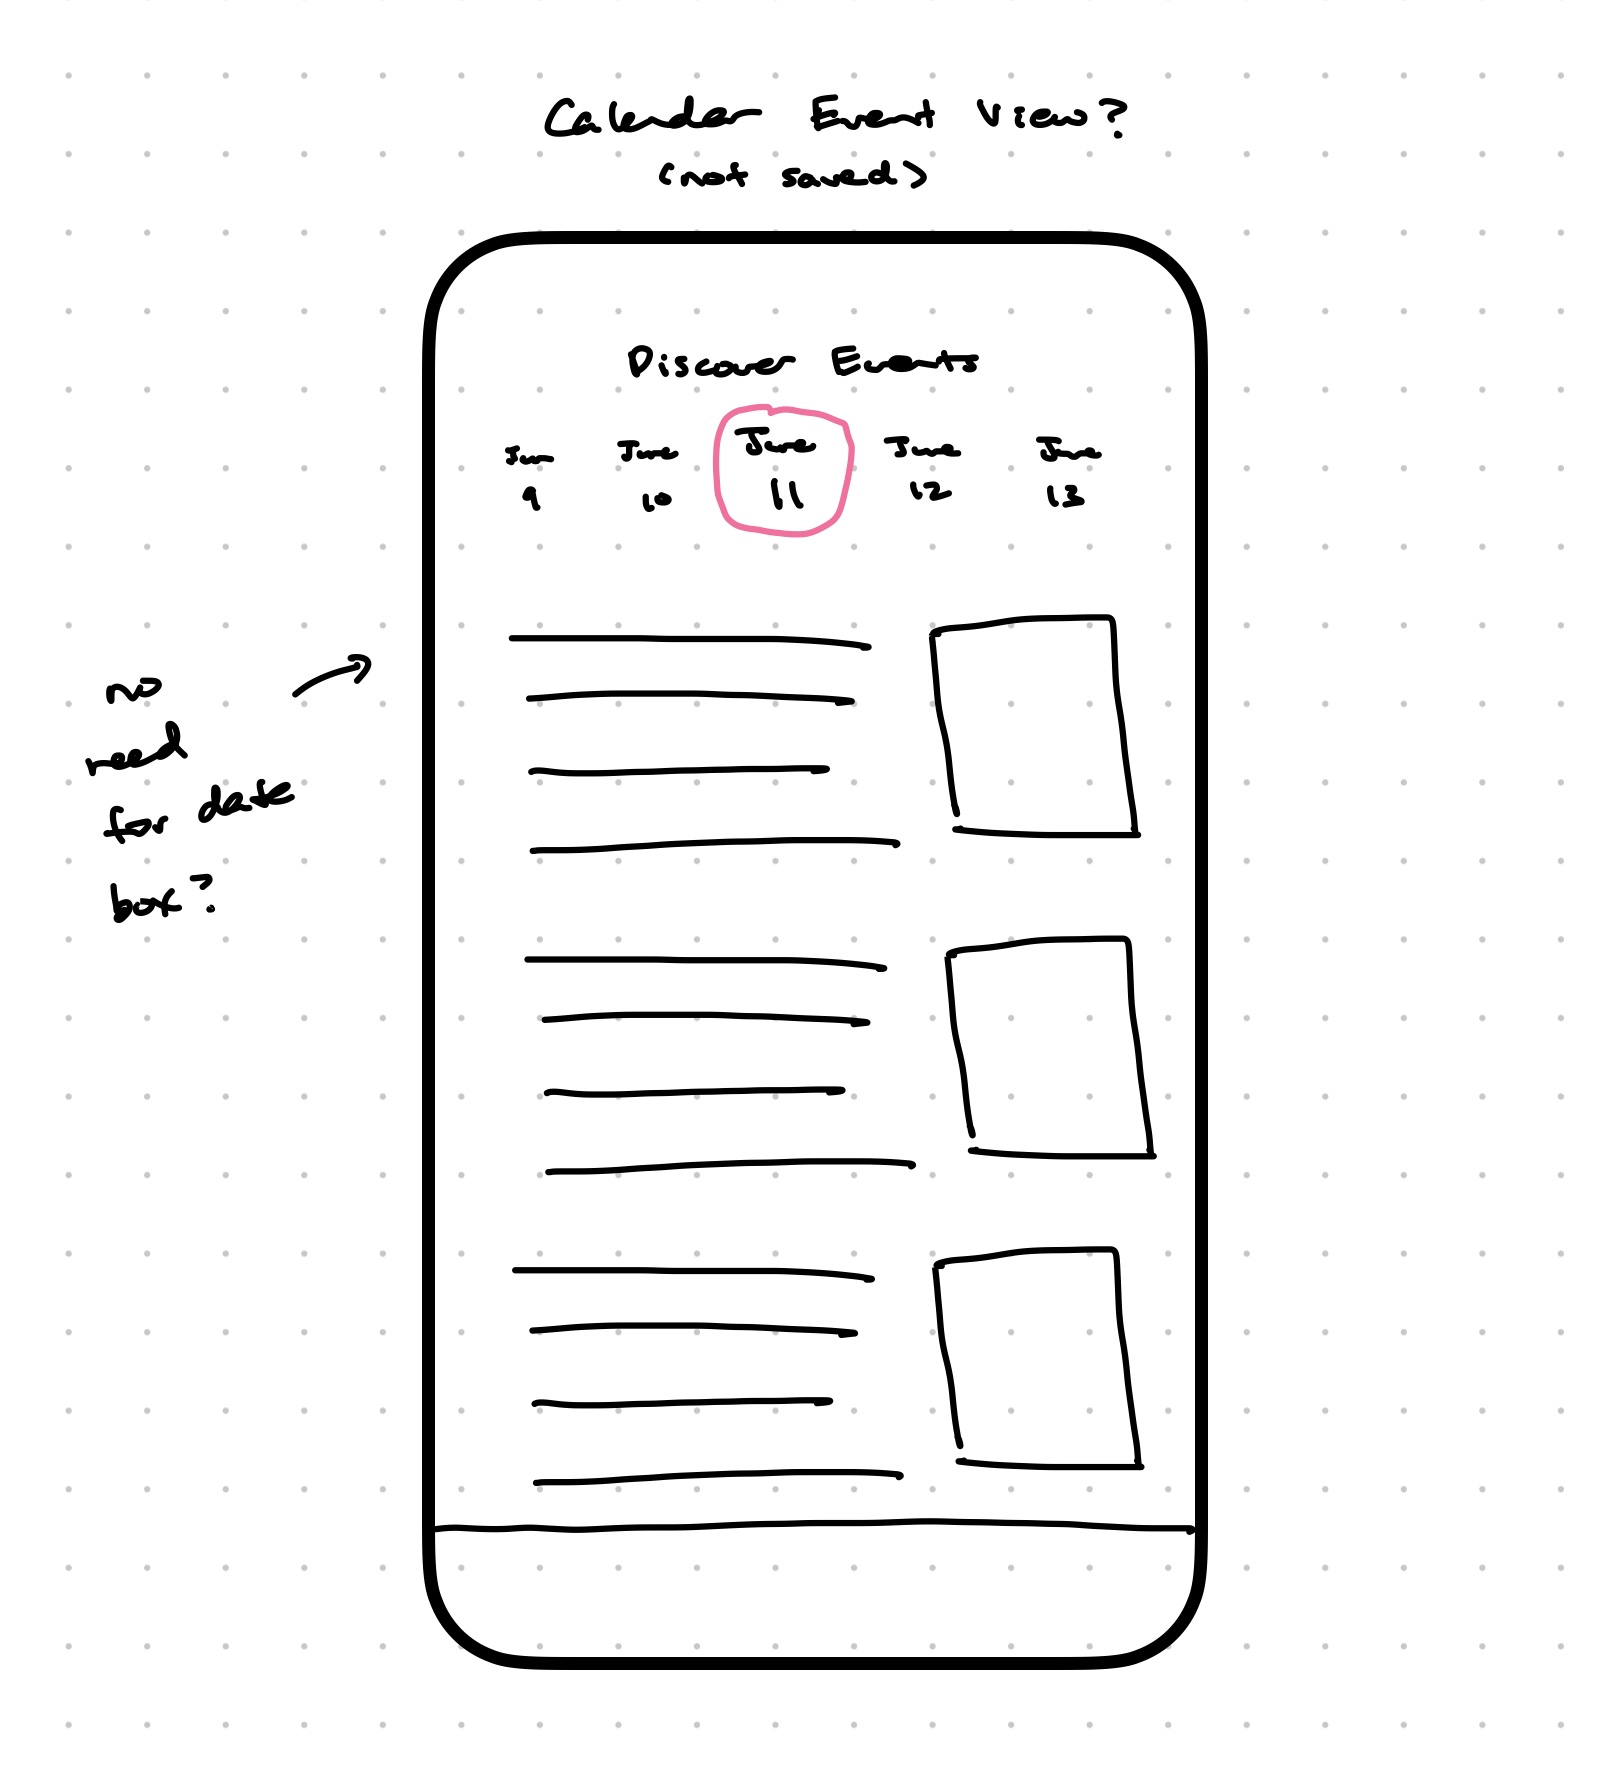 Calender Event View?
(not saved)
Discover Events
Jun June June June June
9 10 11 12 13
no
need
for date
box?